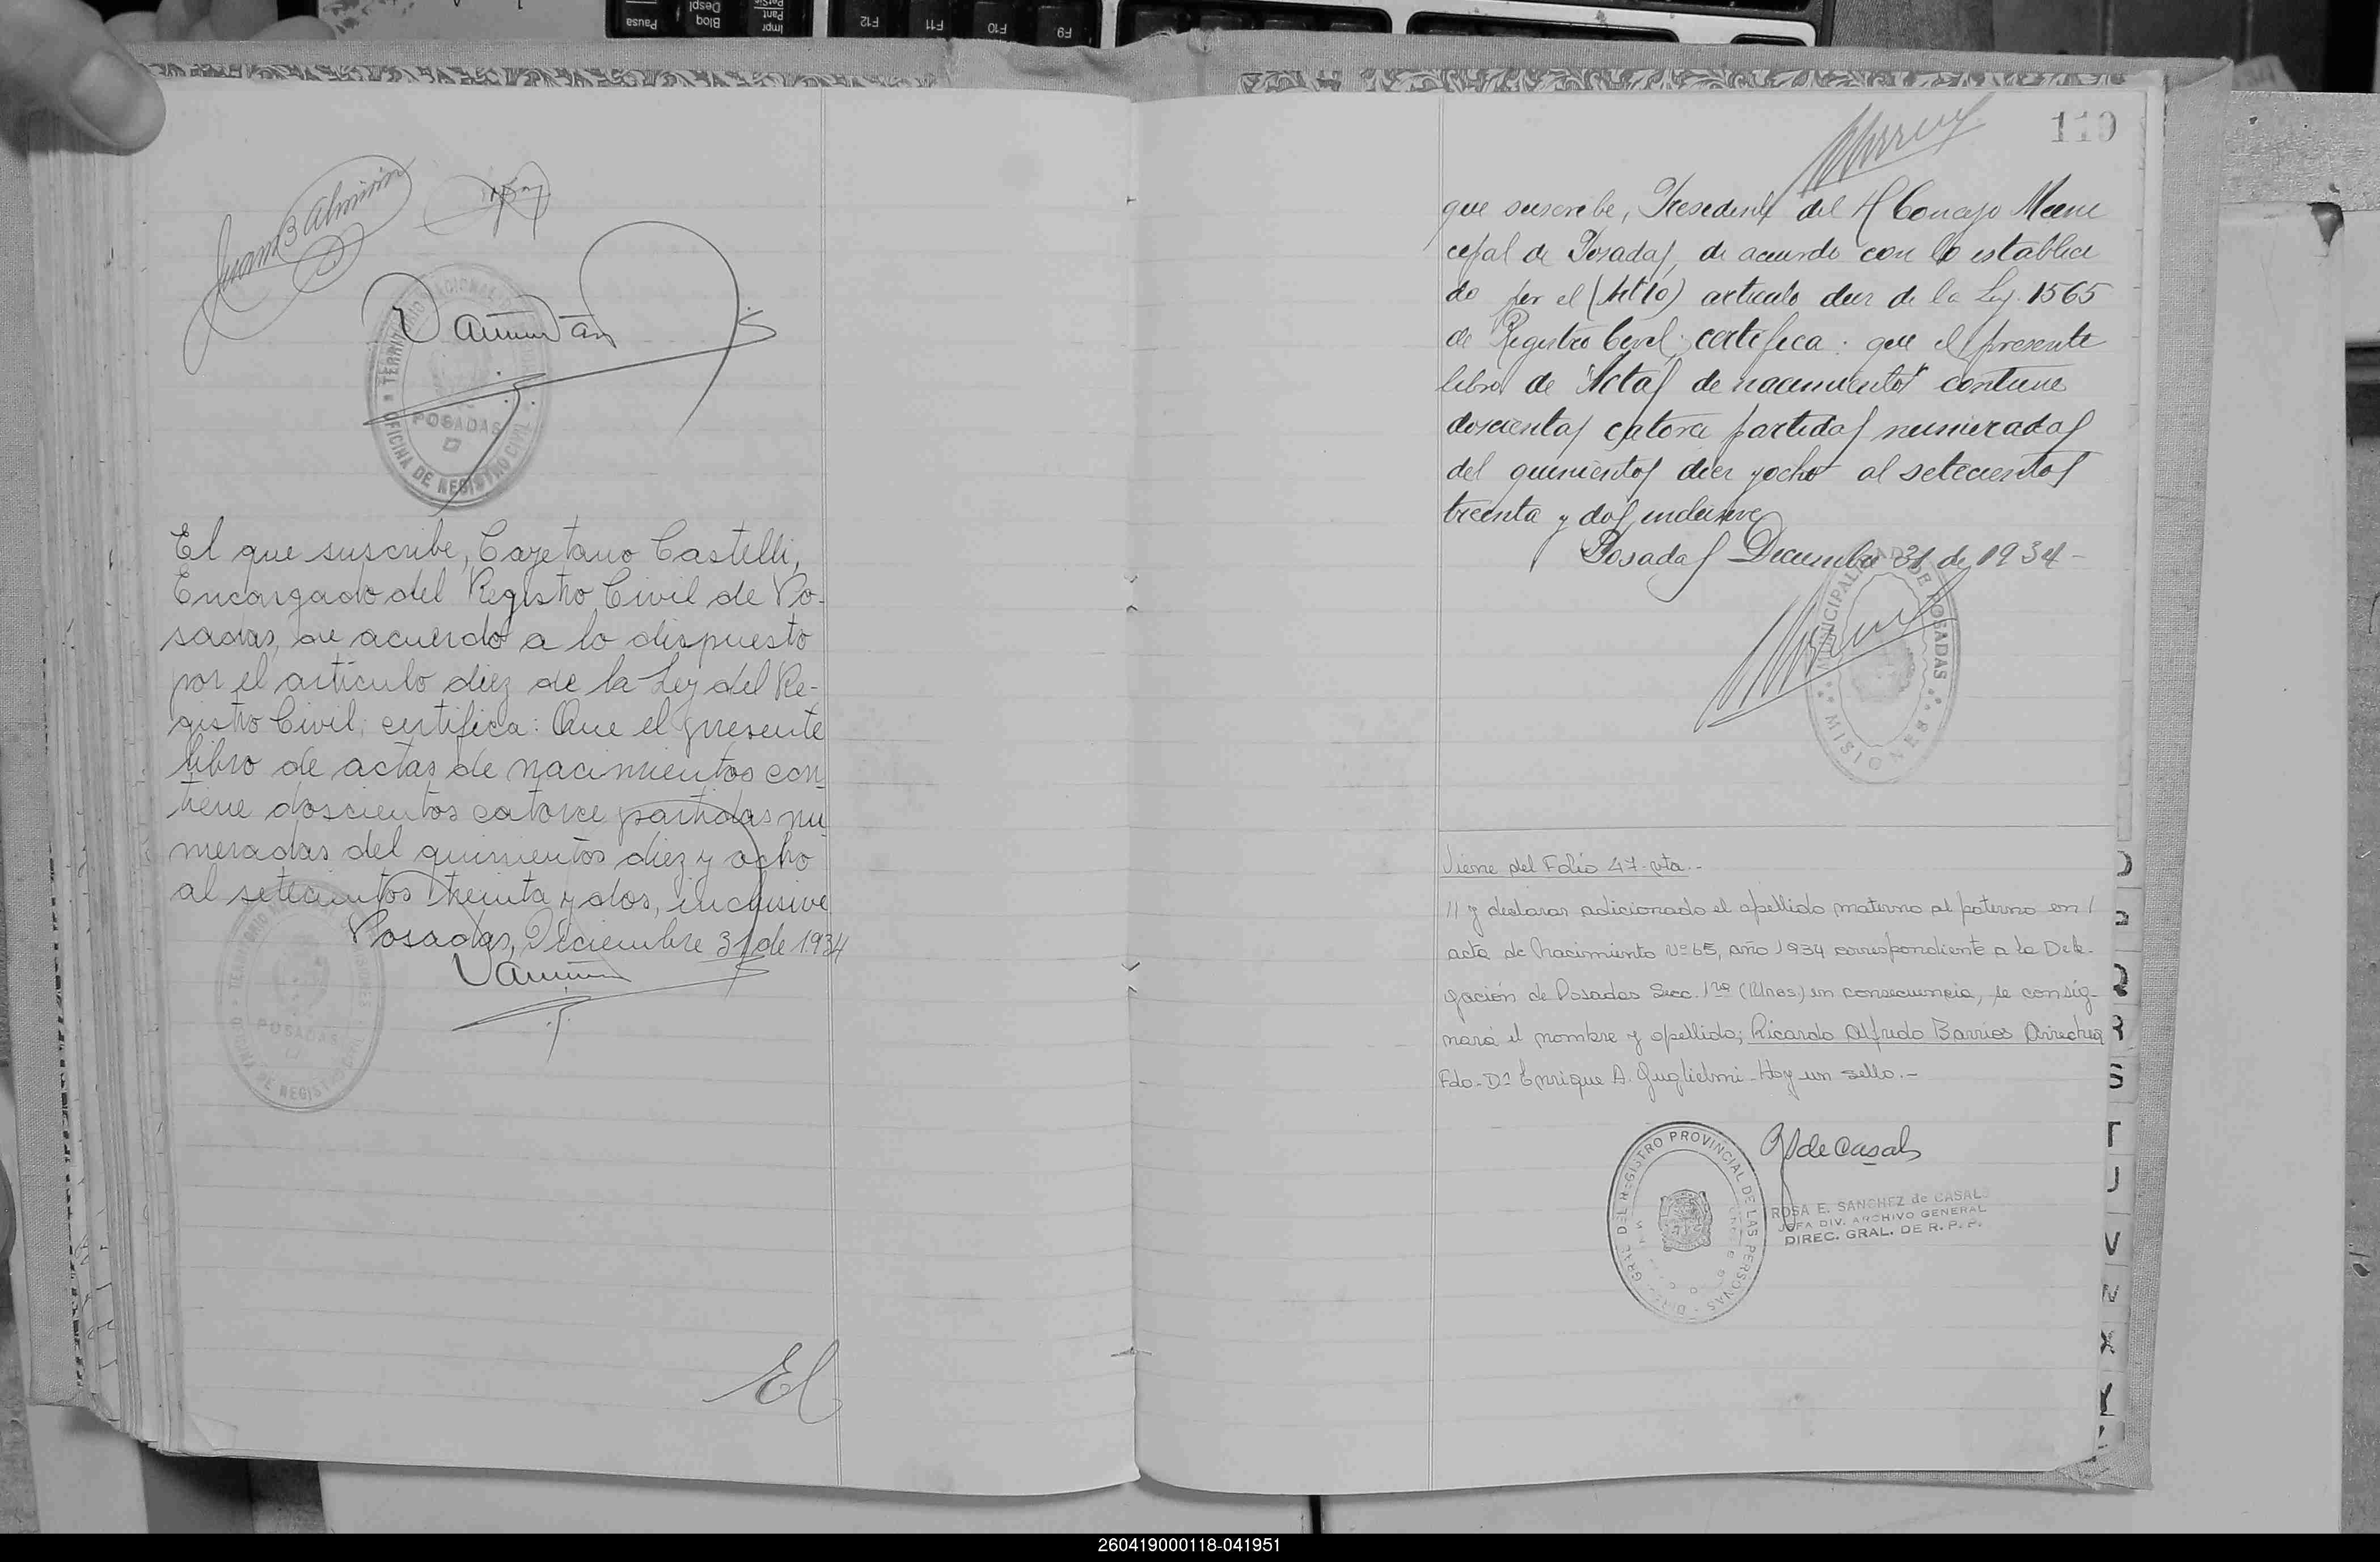 Juan B Almirón
El que suscribe, Cayetano Castelli,
Encargado del Registro Civil de Po-
sadas, de acuerdo a lo dispuesto
por el artículo diez de la Ley del Re-
gistro Civil, certifica: Que el presente
libro de actas de nacimientos con
tiene doscientos catorce partidas nu
meradas del quinientos diez y ocho
al setecientos treinta y dos, inclusive
Posadas, Diciembre 31 de 1934
El
POSADAS
OFICINA DE REGISTRO CIVIL
119
que suscribe, Presidente del H Concejo Muni
cipal de Posadas, de acuerdo con lo estableci
do por el (Art 10) articulo diez de la Ley 1565
de Registro Civil; certifica: que el presente
libro de "Actas de nacimientos" contiene
doscientas catorce partidas numeradas
del quinientos diez y ocho al setecientos
treinta y dos, inclusive
Posadas Diciembre 31 de 1934-
MUNICIPALIDAD DE POSADAS
MISIONES
Viene del Folio 47 vta.-
// y declarar adicionado el apellido materno al paterno en /
acta de Nacimiento Nº 65, año 1934 correspondiente a la Dele-
gación de Posadas Secc. 1ra (Mnes.) en consecuencia, se consig-
nará el nombre y apellido; Ricardo Alfredo Barrios Arrechea
Fdo-Dr Enrique A. Guglielmi-Hay un sello.-
de Casals
ROSA E. SANCHEZ de CASALS
JEFA DIV. ARCHIVO GENERAL
DIREC. GRAL. DE R. P. P.
DEL REGISTRO PROVINCIAL DE LAS PERSONAS
S
T
U
V
X
Y
F12
F11
F10
F9
Pausa
260419000118-041951